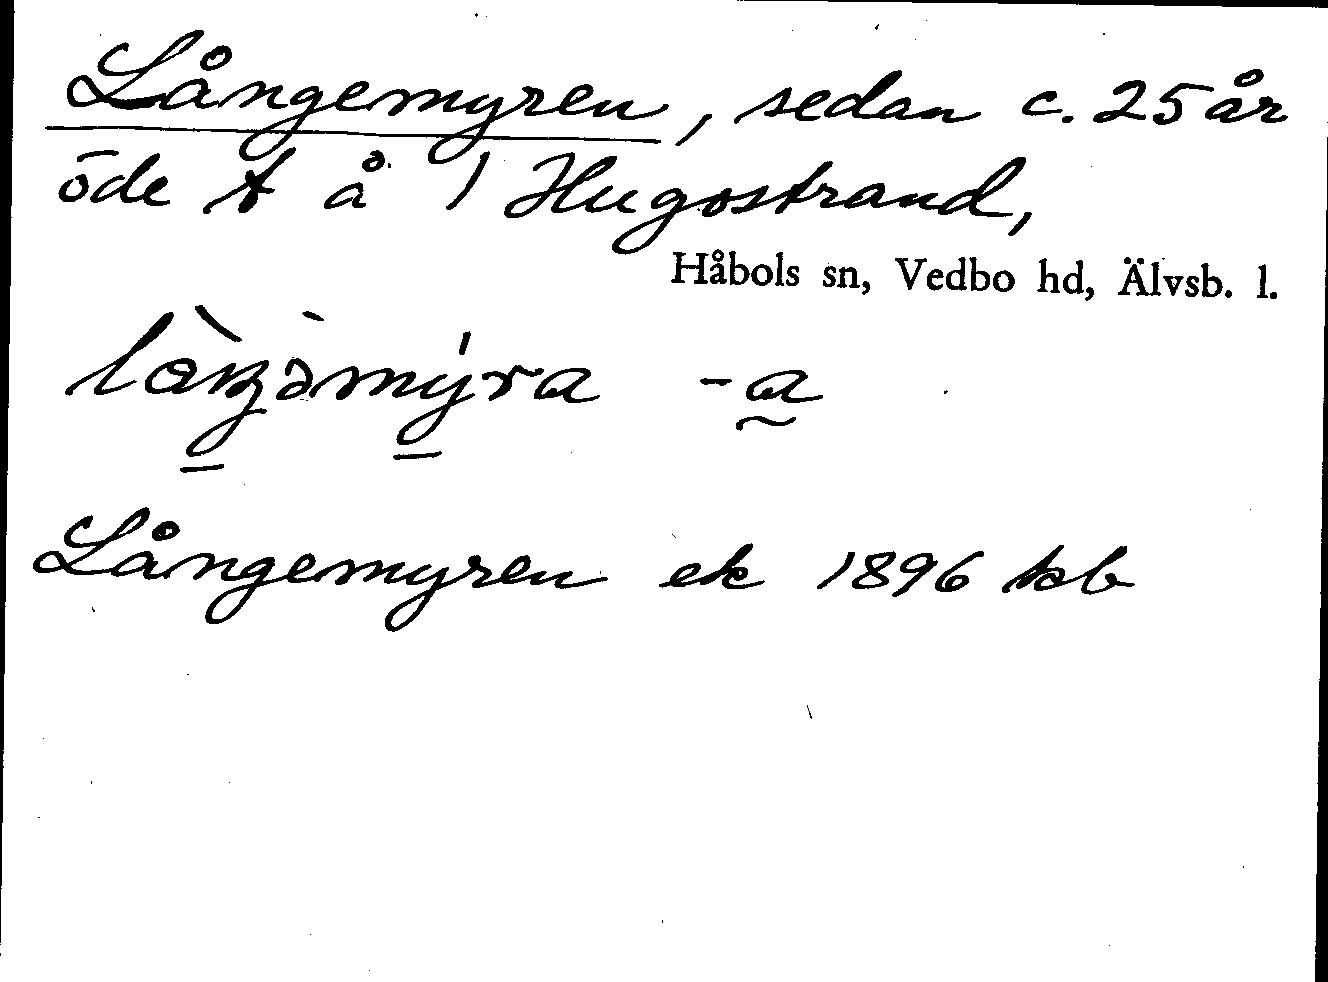 Långemyren, sedan c. 25 år
öde t å 1 Hugostrand,
Håbols sn, Vedbo hd, Älvsb. l.
Långemyren ek 1896 kb